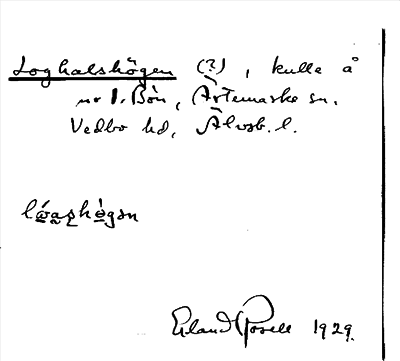 Loghalshögen (?), kulle å
nr 1. Bön, Ärtemarks sn.
Vedbo hd, Älvsb. l.
Erland Rosell 1929.